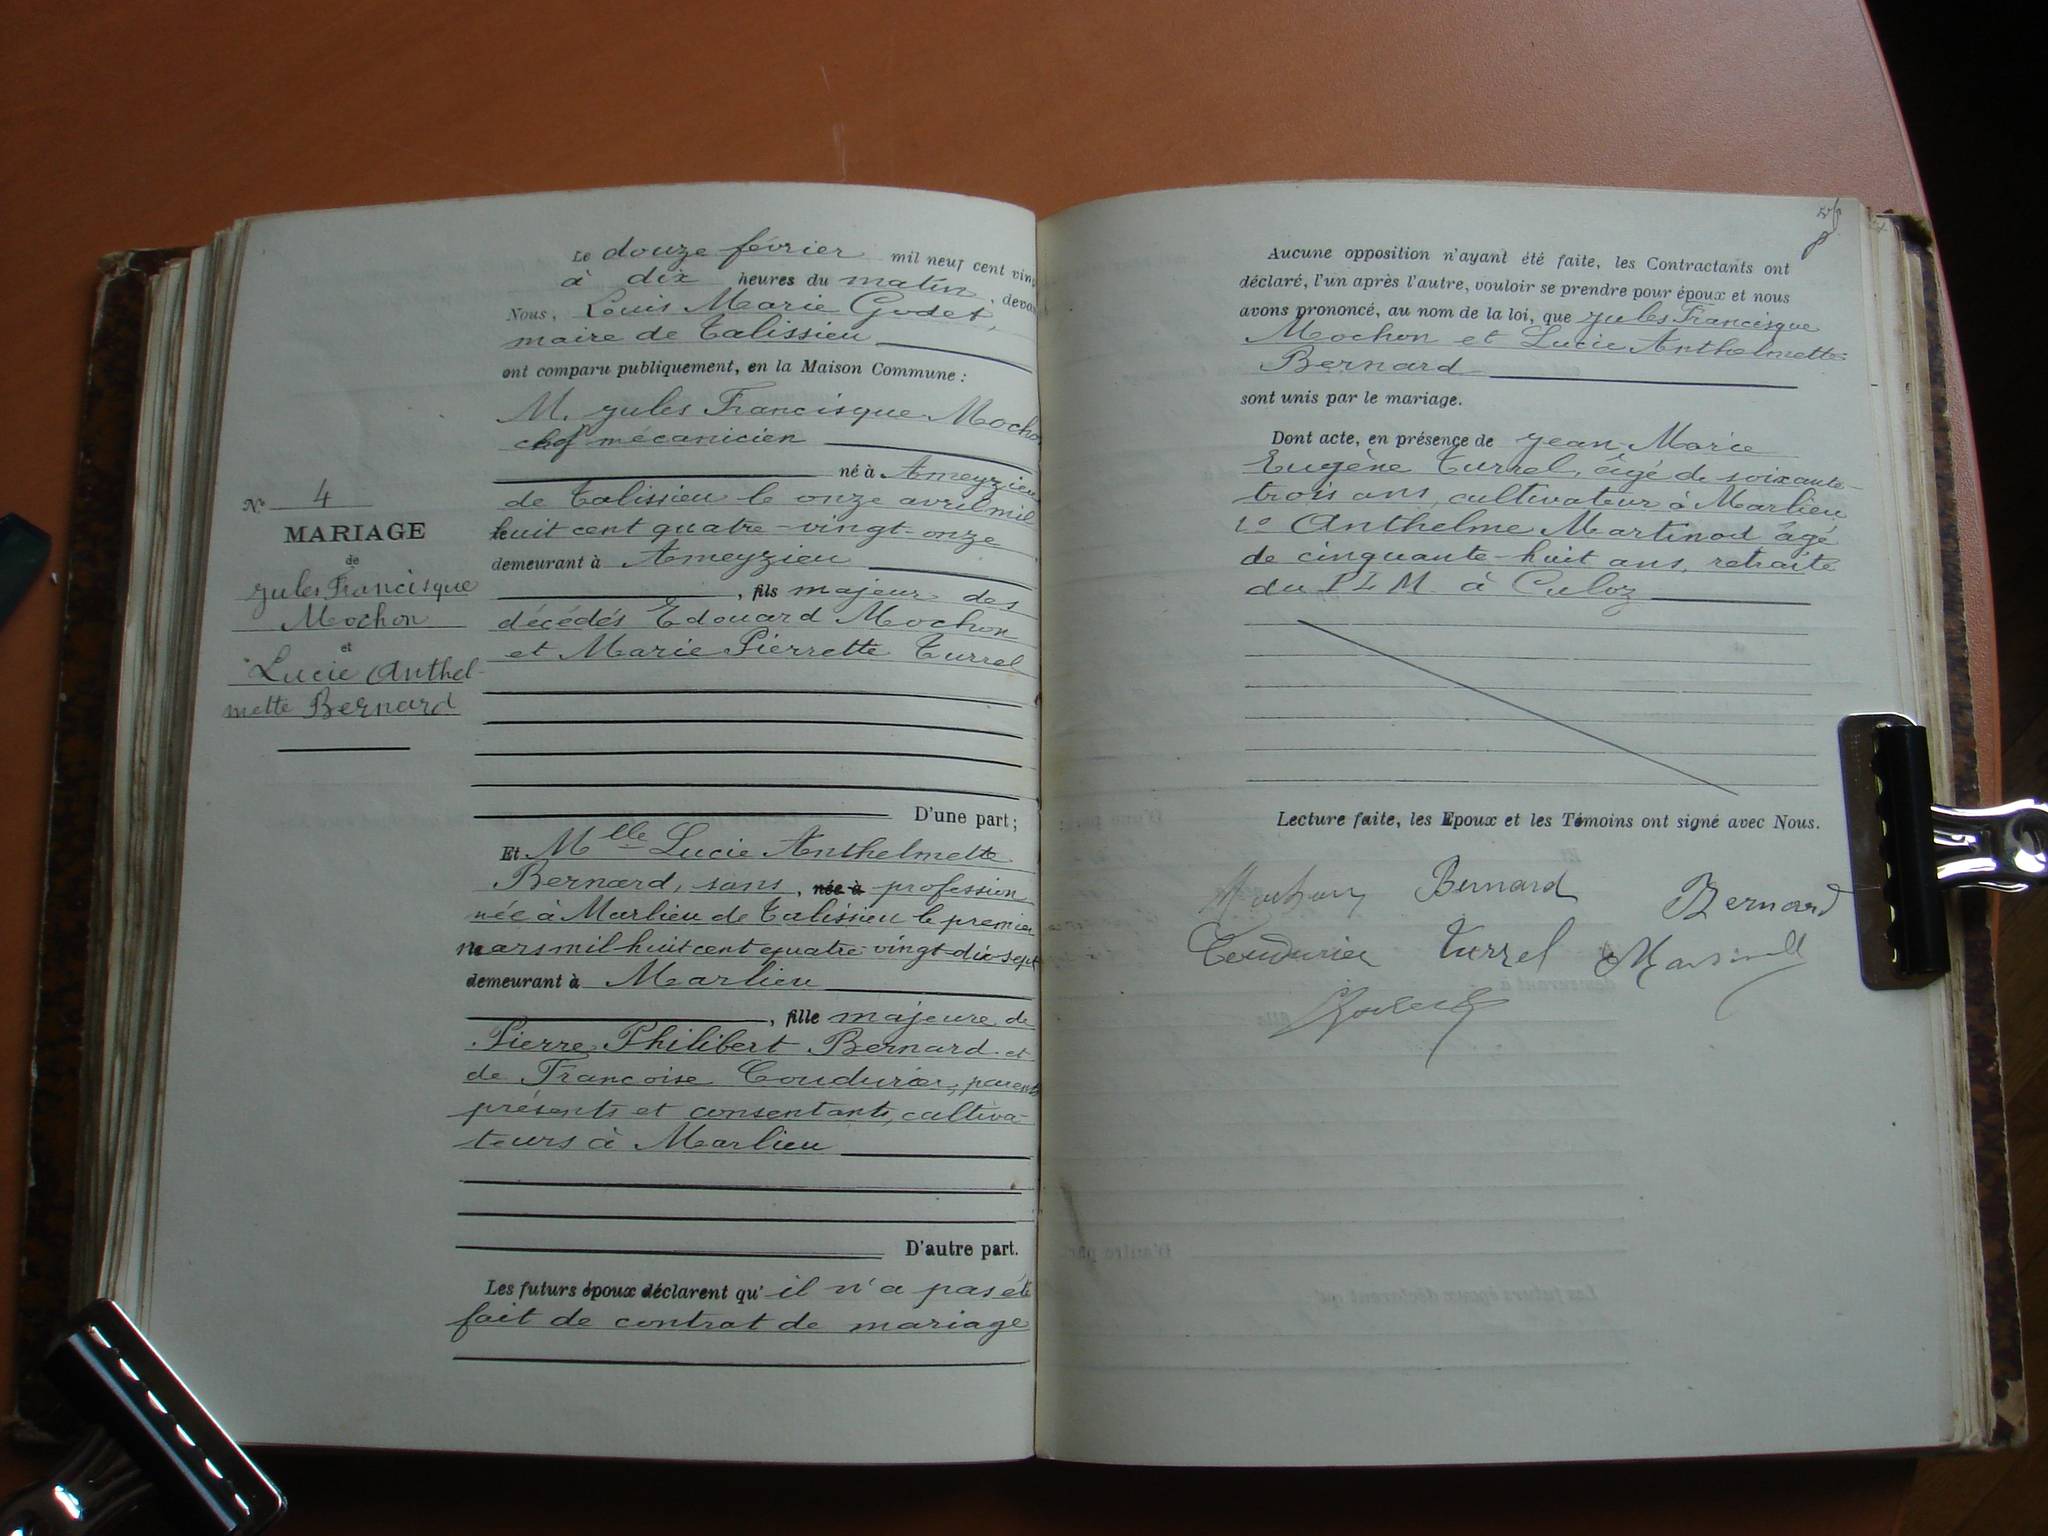 Le douze février mil neuf cent vin
à dix heures du matin, deva
Nous, Louis Marie Godet,
maire de Talissieu
ont comparu publiquement, en la Maison Commune :
M. Jules Francisque Mocho
chef mécanicien
né à Ameyzieu
de Talissieu le onze avril mil
huit cent quatre-vingt-onze
demeurant à Ameyzieu
, fils majeur des
décédés Edouard Mochon
et Marie Pierrette Turrel
D'une part ;
Et Mlle Lucie Anthelmette
Bernard, sans, née à profession
née à Marlieu de Talissieu le premier
mars mil huit cent quatre-vingt-dix-sept
demeurant à Marlieu
, fille majeure de
Pierre Philibert Bernard et
de Francoise Coudurier, parents
présents et consentants, cultiva-
teurs à Marlieu
D'autre part.
Les futurs époux déclarent qu'il n'a pas été
fait de contrat de mariage
N° 4
MARIAGE
de
Jules Francisque
Mochon
et
Lucie Anthel-
mette Bernard
Aucune opposition n'ayant été faite, les Contractants ont
déclaré, l'un après l'autre, vouloir se prendre pour époux et nous
avons prononcé, au nom de la loi, que Jules Francisque
Mochon et Lucie Anthelmette
Bernard
sont unis par le mariage.
Dont acte, en présence de Jean-Marie
Eugène Turrel, âgé de soixante-
trois ans, cultivateur à Marlieu
2° Anthelme Martinod âgé
de cinquante-huit ans, retraité
du P L M. à Culoz
Lecture faite, les Epoux et les Témoins ont signé avec Nous.
Mochon Bernard Bernard
Coudurier Turrel